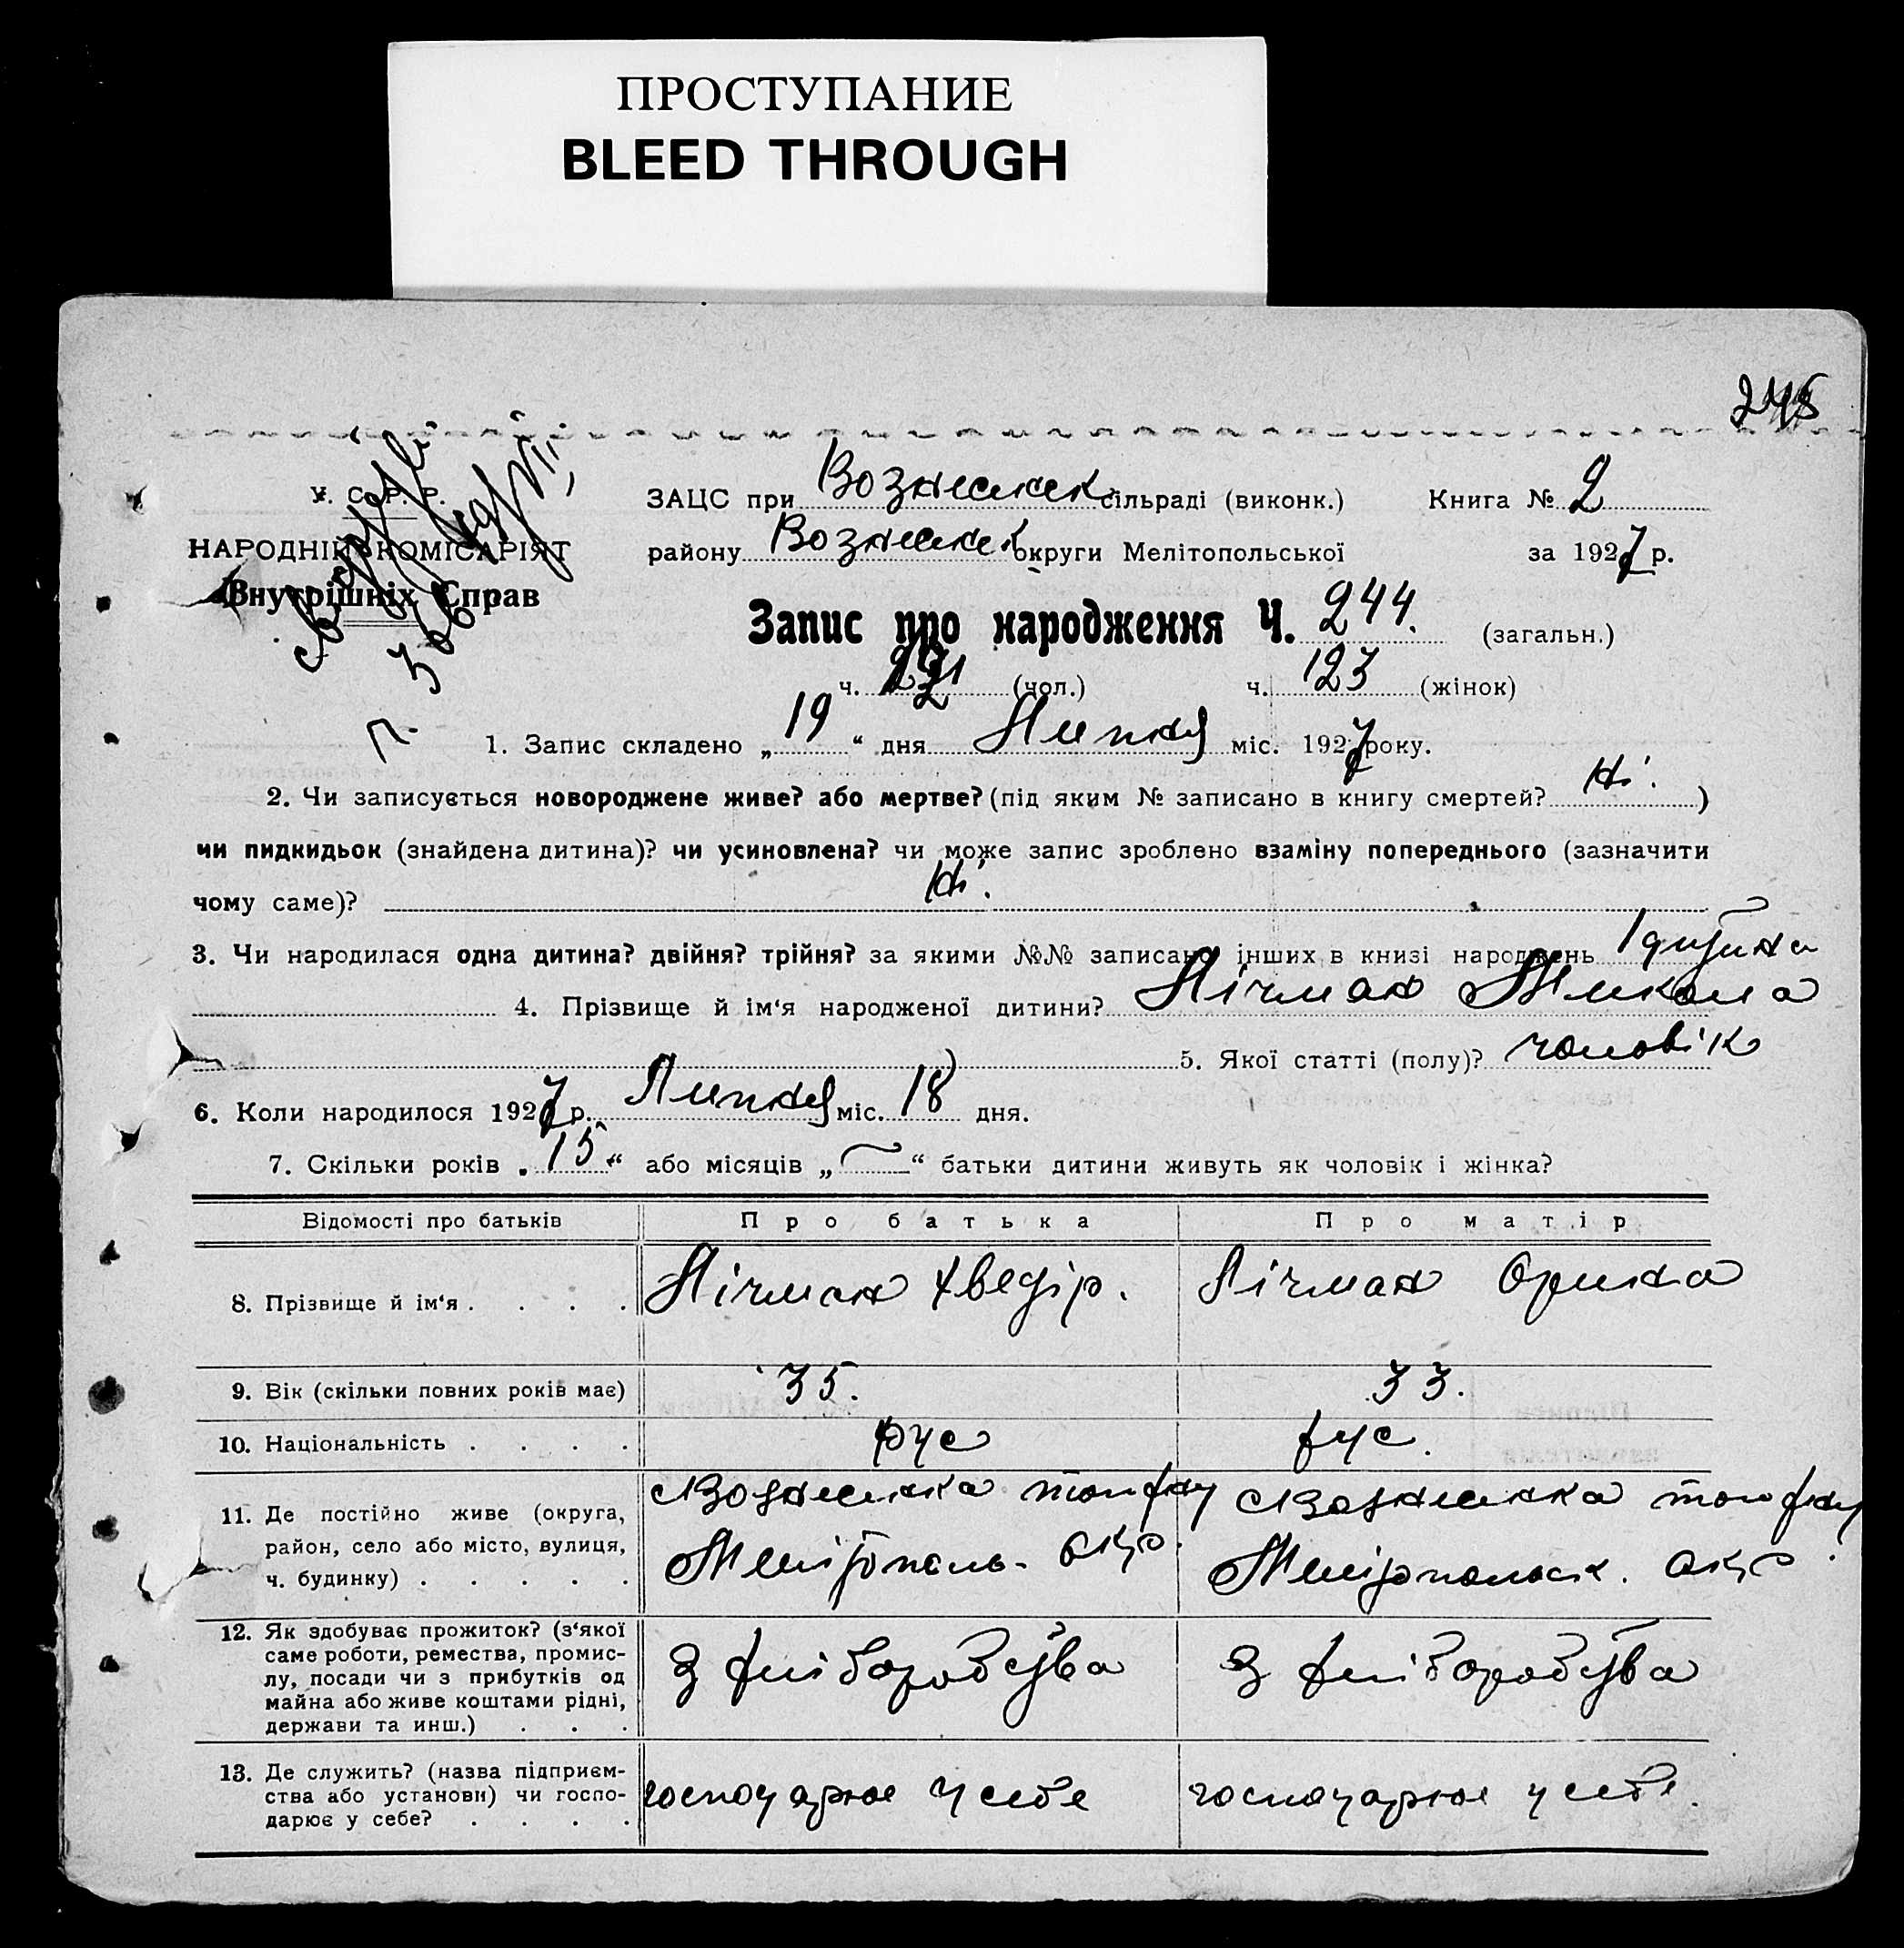 ПРОСТУПАНИЕ
BLEED THROUGH
245
У. С. Р. Р.
НАРОДНІЙ КОМІСАРІЯТ
Внутрішніх Справ
ЗАЦС при Вознесенск сільраді (виконк.) Книга № 2
району Вознесенск округи Мелітопольської за 1927 р.
Запис про народження Ч. 244. (загальн.)
ч. (чол.) ч. 123 (жінок)
1. Запис складено „19“ дня Липня міс. 1927 року.
2. Чи записується новороджене живе? або мертве? (під яким № записано в книгу смертей? Ні.)
чи пидкидьок (знайдена дитина)? чи усиновлена? чи може запис зроблено взаміну попереднього (зазначити
чому саме)? Ні.
3. Чи народилася одна дитина? двійня? трійня? за якими №№ записано інших в книзі народжень 1 дитина
4. Прізвище й ім‘я народженої дитини? Лічман Микола
5. Якої статті (полу)? чоловік
6. Коли народилося 1927 р. Липня міс. 18 дня.
7. Скільки років „15“ або місяців „—“ батьки дитини живуть як чоловік і жінка?
Відомості про батьків Про батька Про матір
8. Прізвище й ім‘я . . . . Лічман Хведір. Лічман Орина
9. Вік (скільки повних років має) 35. 33.
10. Національність . . . . рус рус.
11. Де постійно живе (округа,
район, село або місто, вулиця,
ч. будинку) . . . . .
Вознесенка того рну
Меліtополь. окр.
Вознесенка того рну
Мелітопольск. окр.
12. Як здобуває прожиток? (з‘якої
саме роботи, ремества, промис-
лу, посади чи з прибутків од
майна або живе коштами рідні,
держави та инш.) . . .
З хліборобства
З хліборобства
13. Де служить? (назва підприєм-
ства або установи) чи госпо-
дарює у себе? . . . .
господарює у себе
господарює у себе.